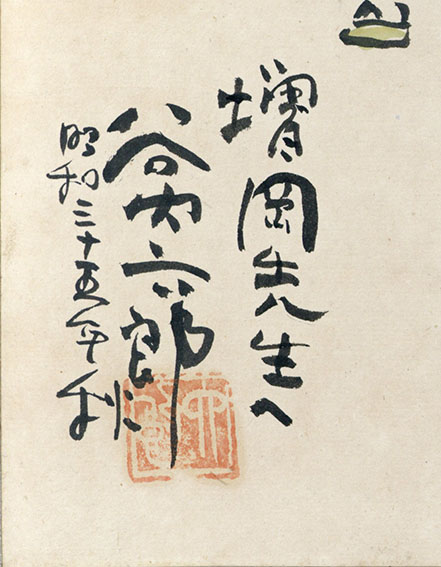 増岡先生へ
谷内六郎
昭和三十五年秋